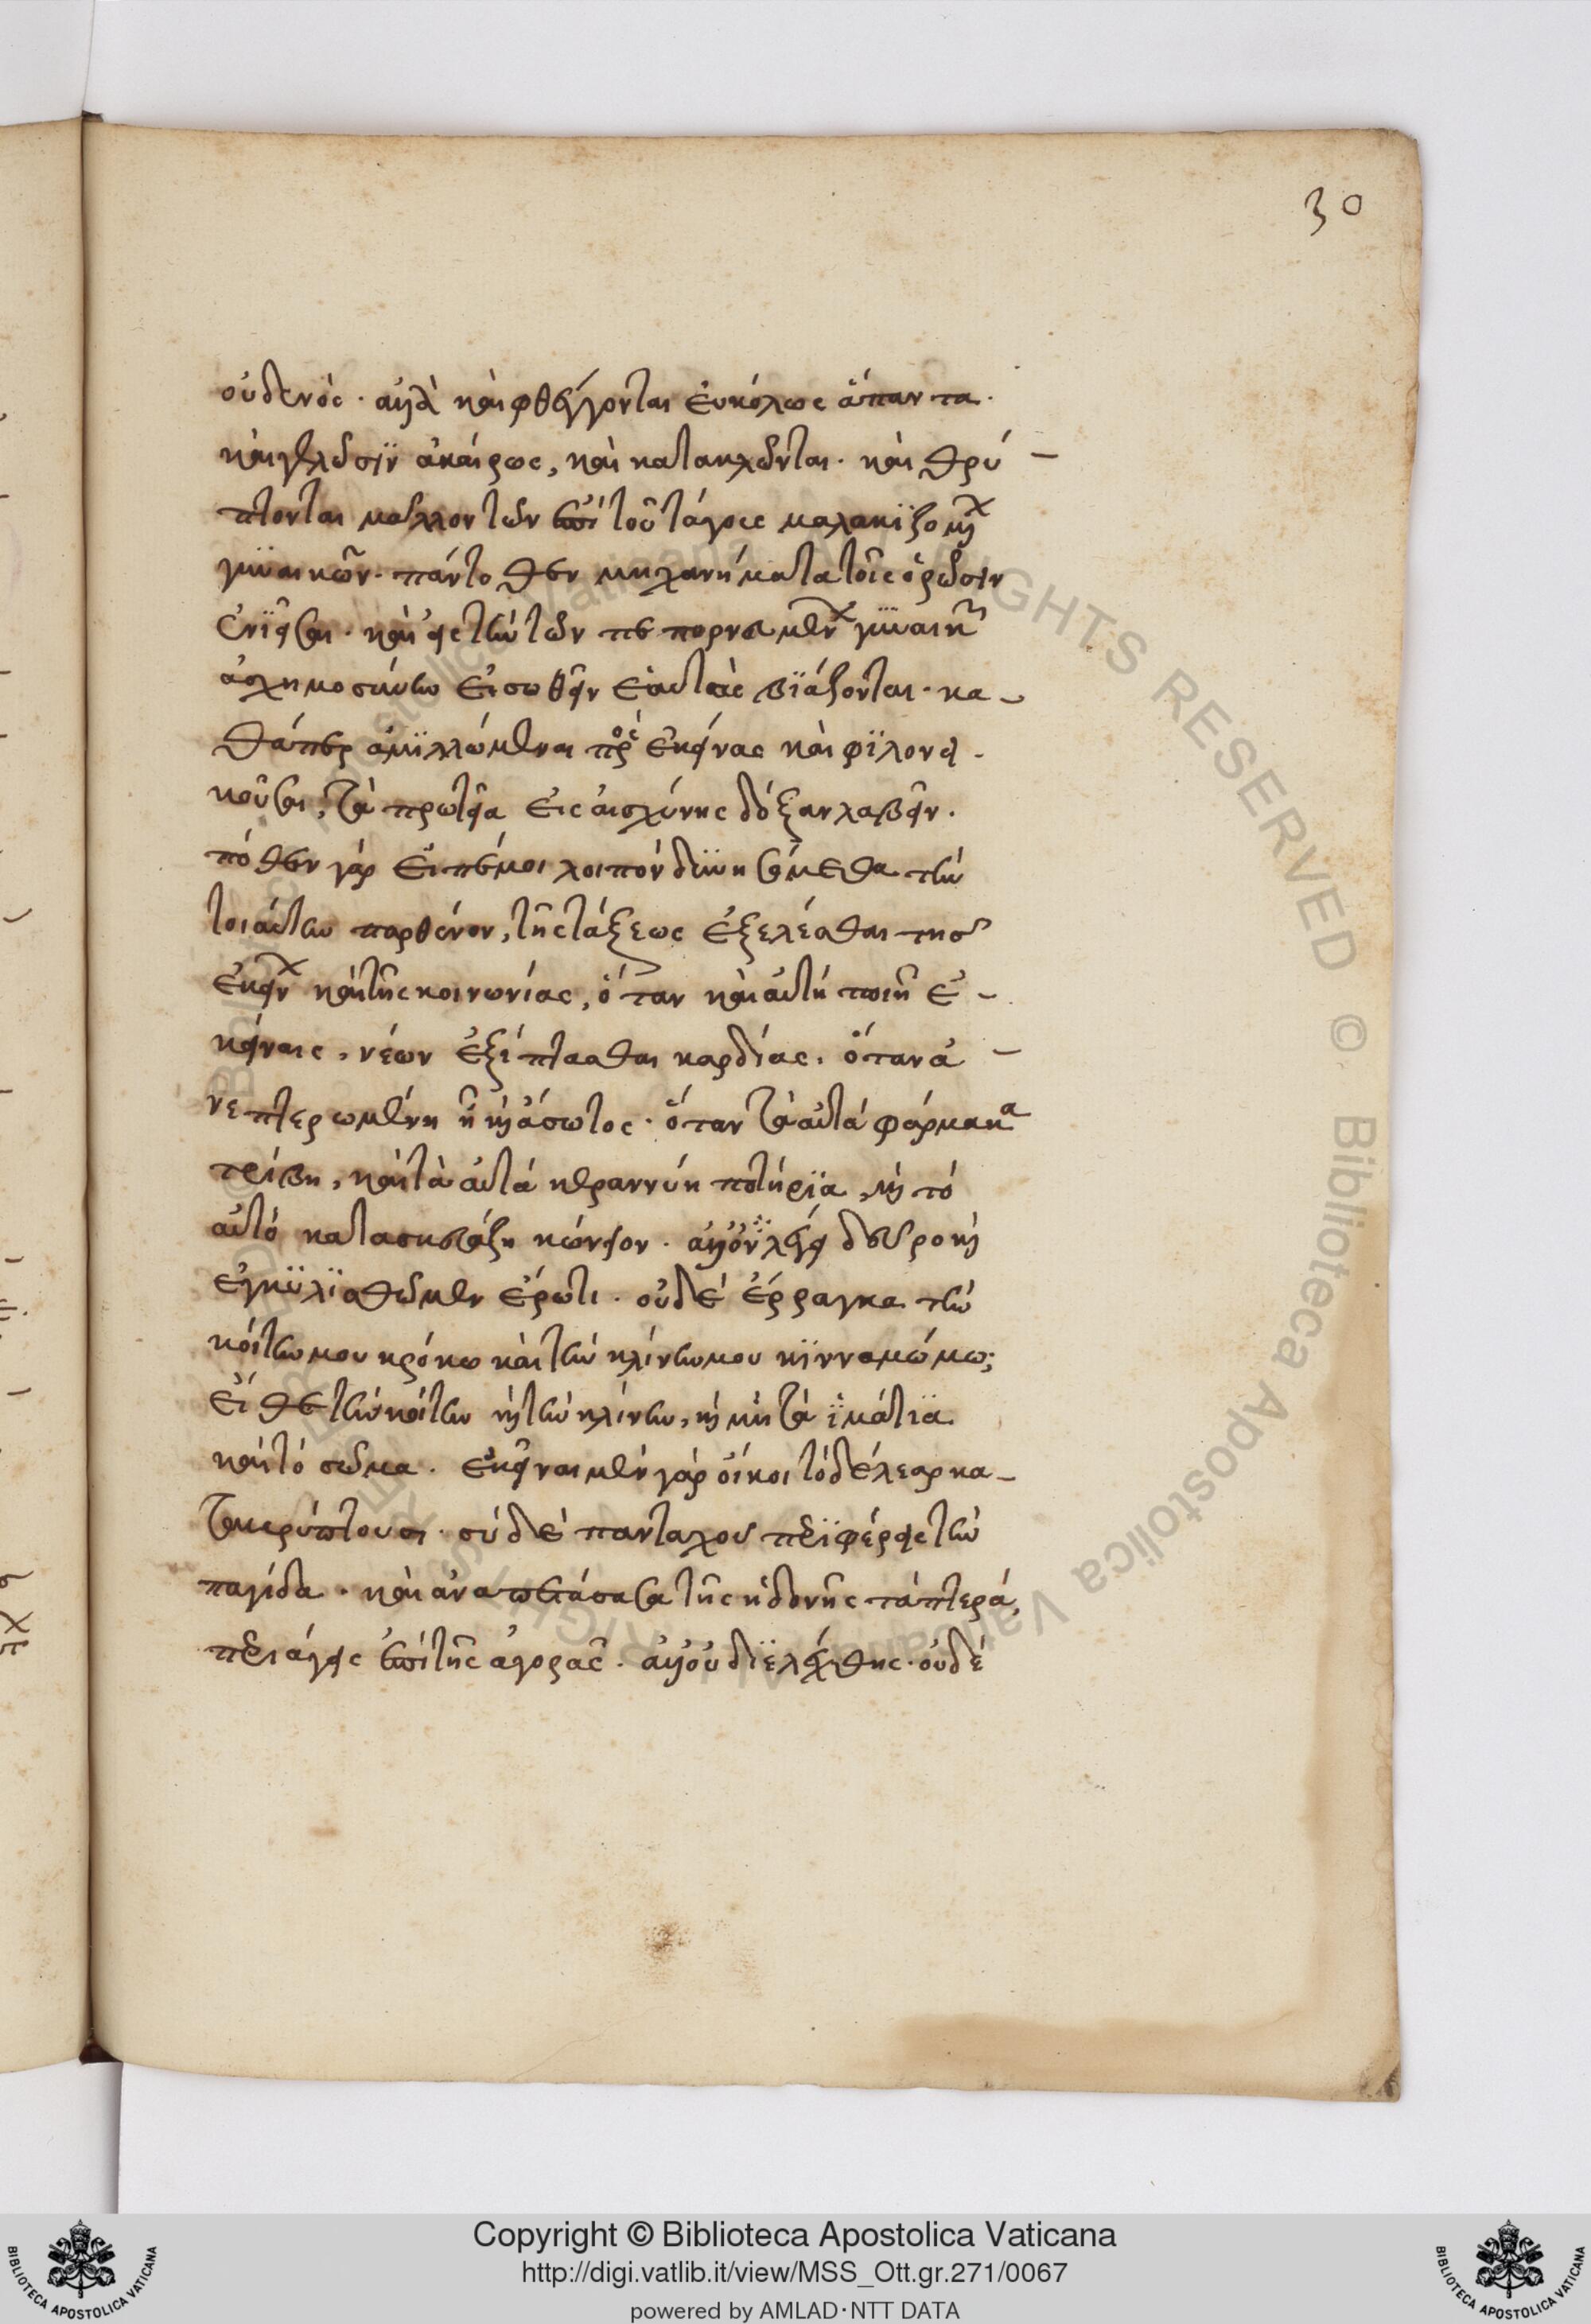 30
οὐδενὸς· ἀλλὰ καὶ φθέγγονται εὐκόλως ἅπαντα·
καὶ γελῶσιν ἀκαίρως, καὶ κατακλῶνται· καὶ θρύ-
πτονται μᾶλλον τῶν ἐπὶ τοῦ τάγους μαλακιζομένων
γυναικῶν· πάντοθεν μηχανήματα τοῖς ὁρῶσιν
ἐνιεῖσαι· καὶ εἰς τὴν τῶν πεπορνευμένων γυναικῶν
ἀσχημοσύνην εἰσωθεῖν ἑαυτὰς βιάζονται· κα-
θάπερ ἁμιλλώμεναι πρὸς ἐκείνας καὶ φιλονει-
κοῦσαι, τὰ πρωτεῖα εἰς αἰσχύνης δόξαν λαβεῖν·
πόθεν γάρ εἰπέ μοι λοιπόν δυνησόμεθα τὴν
τοιαύτην παρθένον, τῆς τάξεως ἐξελέσθαι τῆς
ἐκείνων καὶ τῆς κοινωνίας, ὅταν καὶ αὐτή ποιῇ ἐ-
κείναις, νέων ἐξίπτασθαι καρδίας, ὅταν ἀ-
νεπτερωμένη ᾖ καὶ ἄσωτος· ὅταν τὰ αὐτά φάρμακα
τρίβη, καὶ τὰ αὐτά κεραννύη ποτήρια, καὶ τό
αὐτό κατασκευάζη κώνειον· ἀλλ' οὐ λέγει δεῦρο καὶ
ἐγκυλισθῶμεν ἔρωτι· οὐδέ ἔρραγκα τὴν
κοίτην μου κρόκω καὶ τὴν κλίνην μου κινναμώμω;
εἴθε τὴν κοίτην καὶ τὴν κλίνην, καὶ μὴ τὰ ἱμάτια
καὶ τό σῶμα· ἐκεῖναι μέν γάρ οἴκοι τό δέλεαρ κα-
τακρύπτουσι· σύ δέ πανταχοῦ περιφέρεις τὴν
παγίδα· καὶ ἀναπετάσασα τῆς ἡδονῆς τὰ πτερά,
περιάγεις ἐπί τῆς ἀγορᾶς· ἀλλ' οὐ διελέχθης· οὐδέ
Copyright © Biblioteca Apostolica Vaticana
http://digi.vatlib.it/view/MSS_Ott.gr.271/0067
powered by AMLAD·NTT DATA